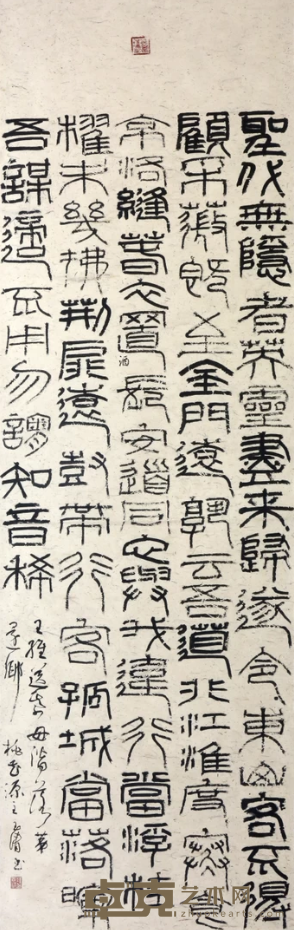 聖代無隱者英靈盡來歸遂令東山客不得
顧采薇既至金門遠孰云吾道非江淮度寒食
京洛縫春衣置酒長安道同心與我違行當浮桂
櫂未幾拂荊扉遠樹帶行客孤城當落暉
吾謀適不用勿謂知音稀
王維送綦毋潛落第
還鄉 桃花源
書
卓克艺术网